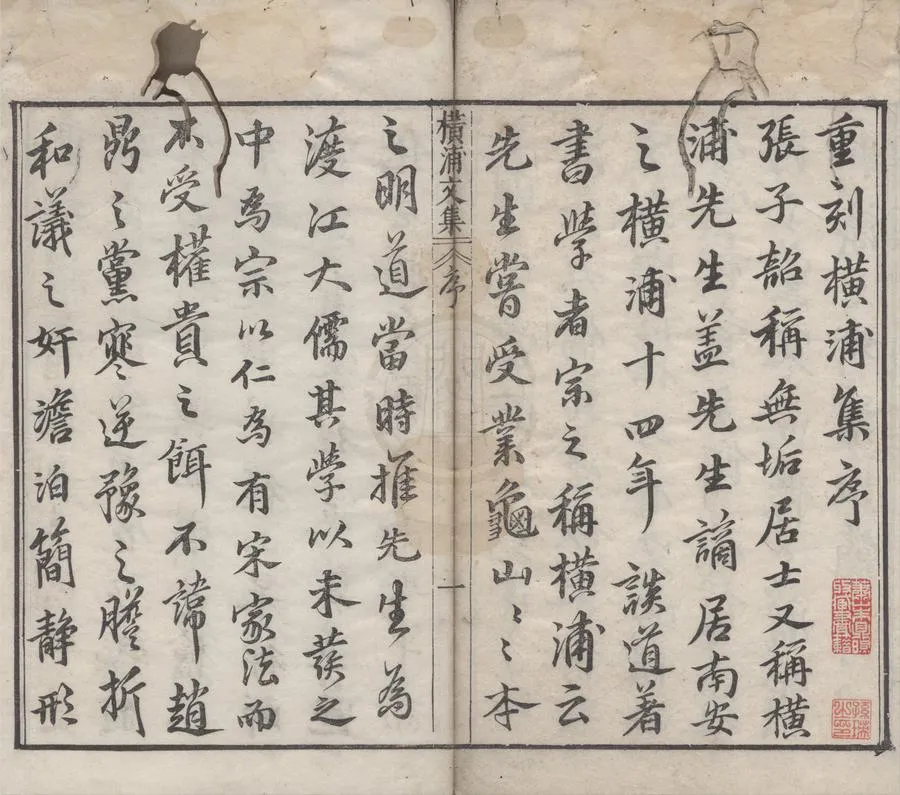 重刻橫浦集序
張子韶稱無垢居士又稱橫
浦先生蓋先生謫居南安
之橫浦十四年談道著
書學者宗之稱橫浦云
先生嘗受業龜山〻本
橫浦文集 序 一
之明道當時推先生為
渡江大儒其學以未發之
中為宗以仁為有宋家法而
不受權貴之餌不諱趙
鼎之黨寒逆豫之膽折
和議之奸澹泊簡靜形